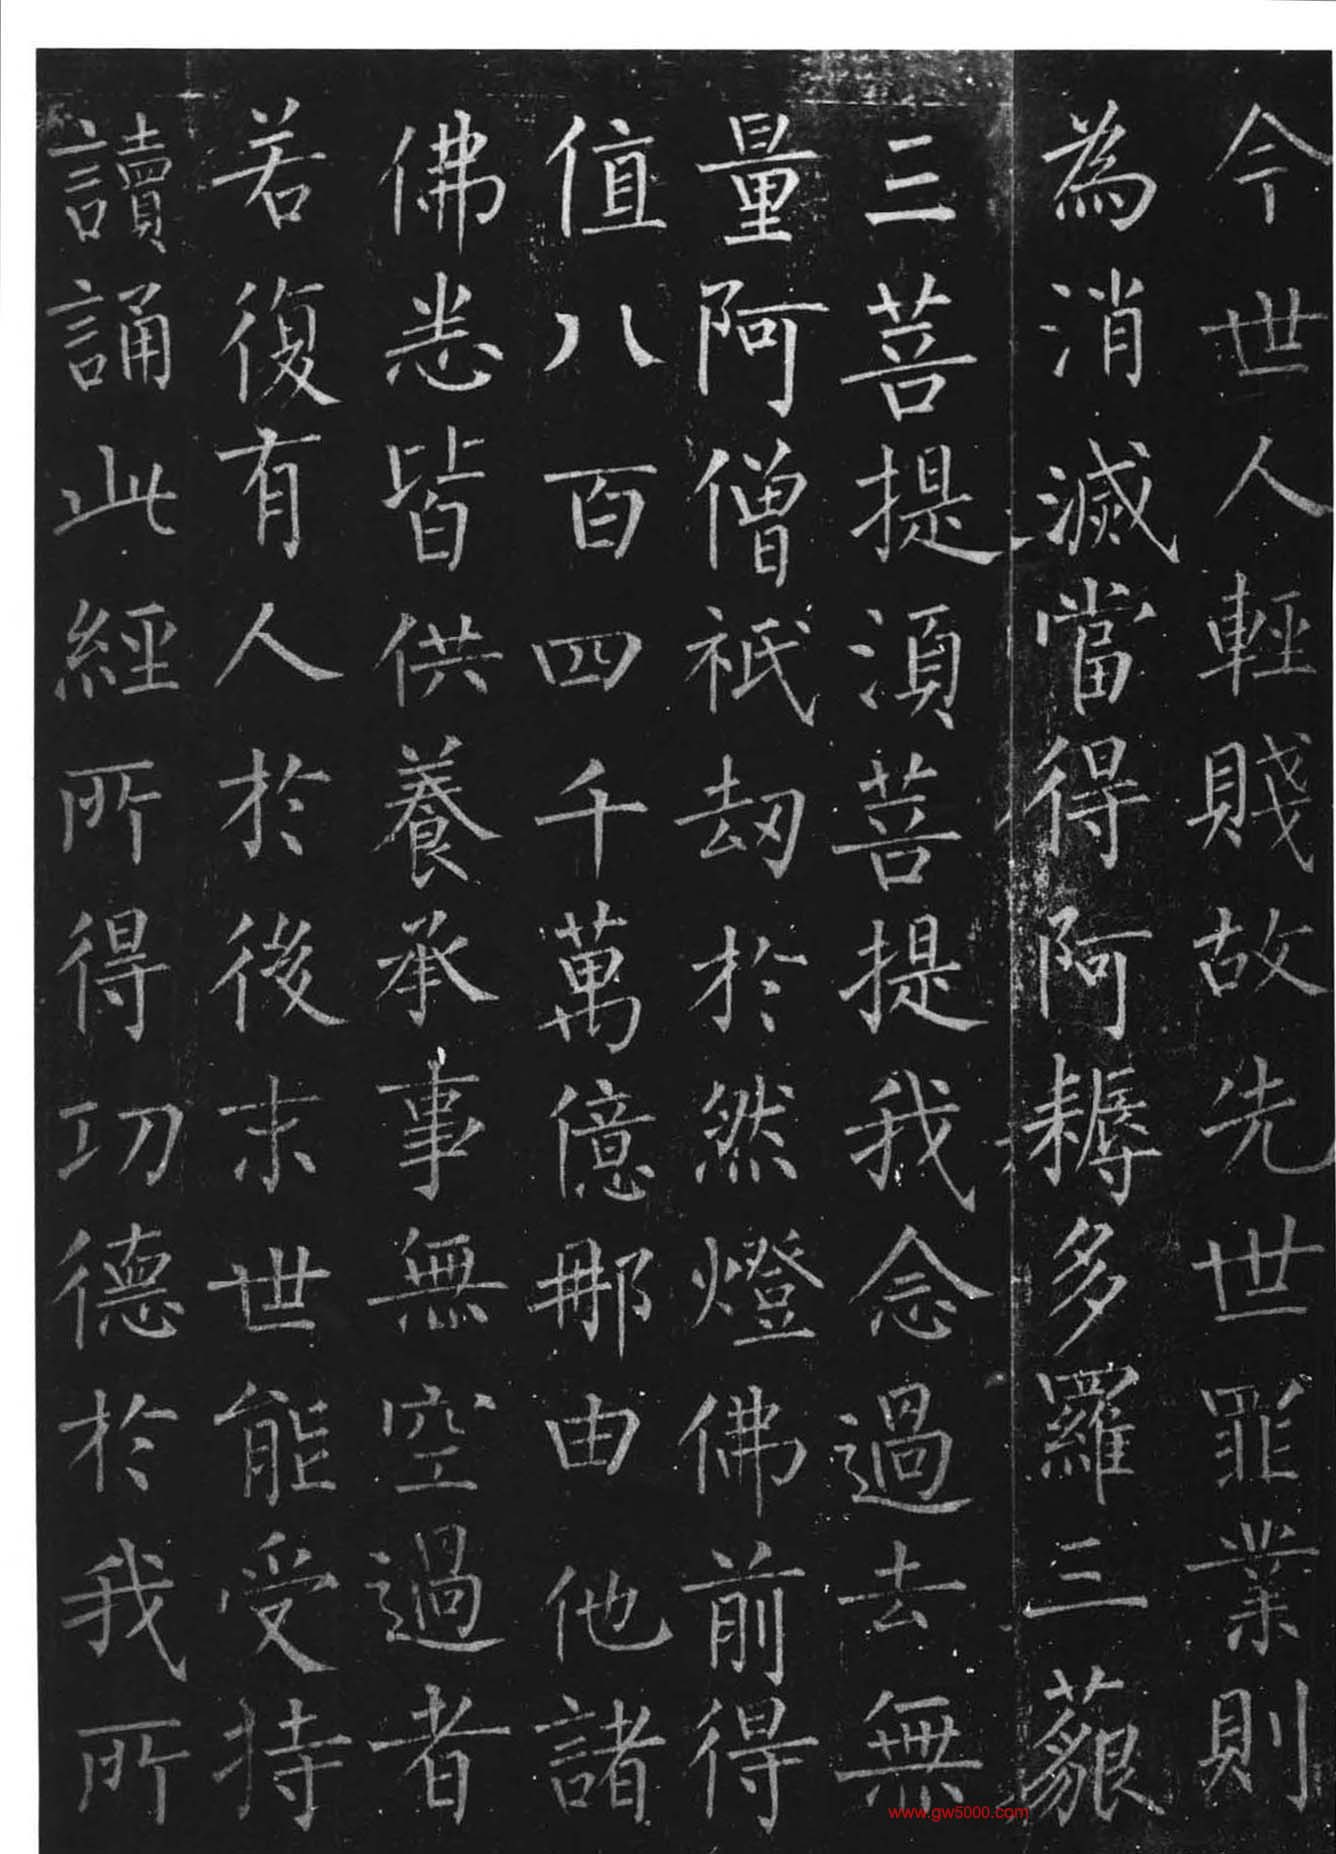 今世人輕賤故先世罪業則
為消滅當得阿耨多羅三藐
三菩提須菩提我念過去無
量阿僧祇劫於然燈佛前得
值八百四千萬億那由他諸
佛悉皆供養承事無空過者
若復有人於後末世能受持
讀誦此經所得功德於我所
www.gw5000.com